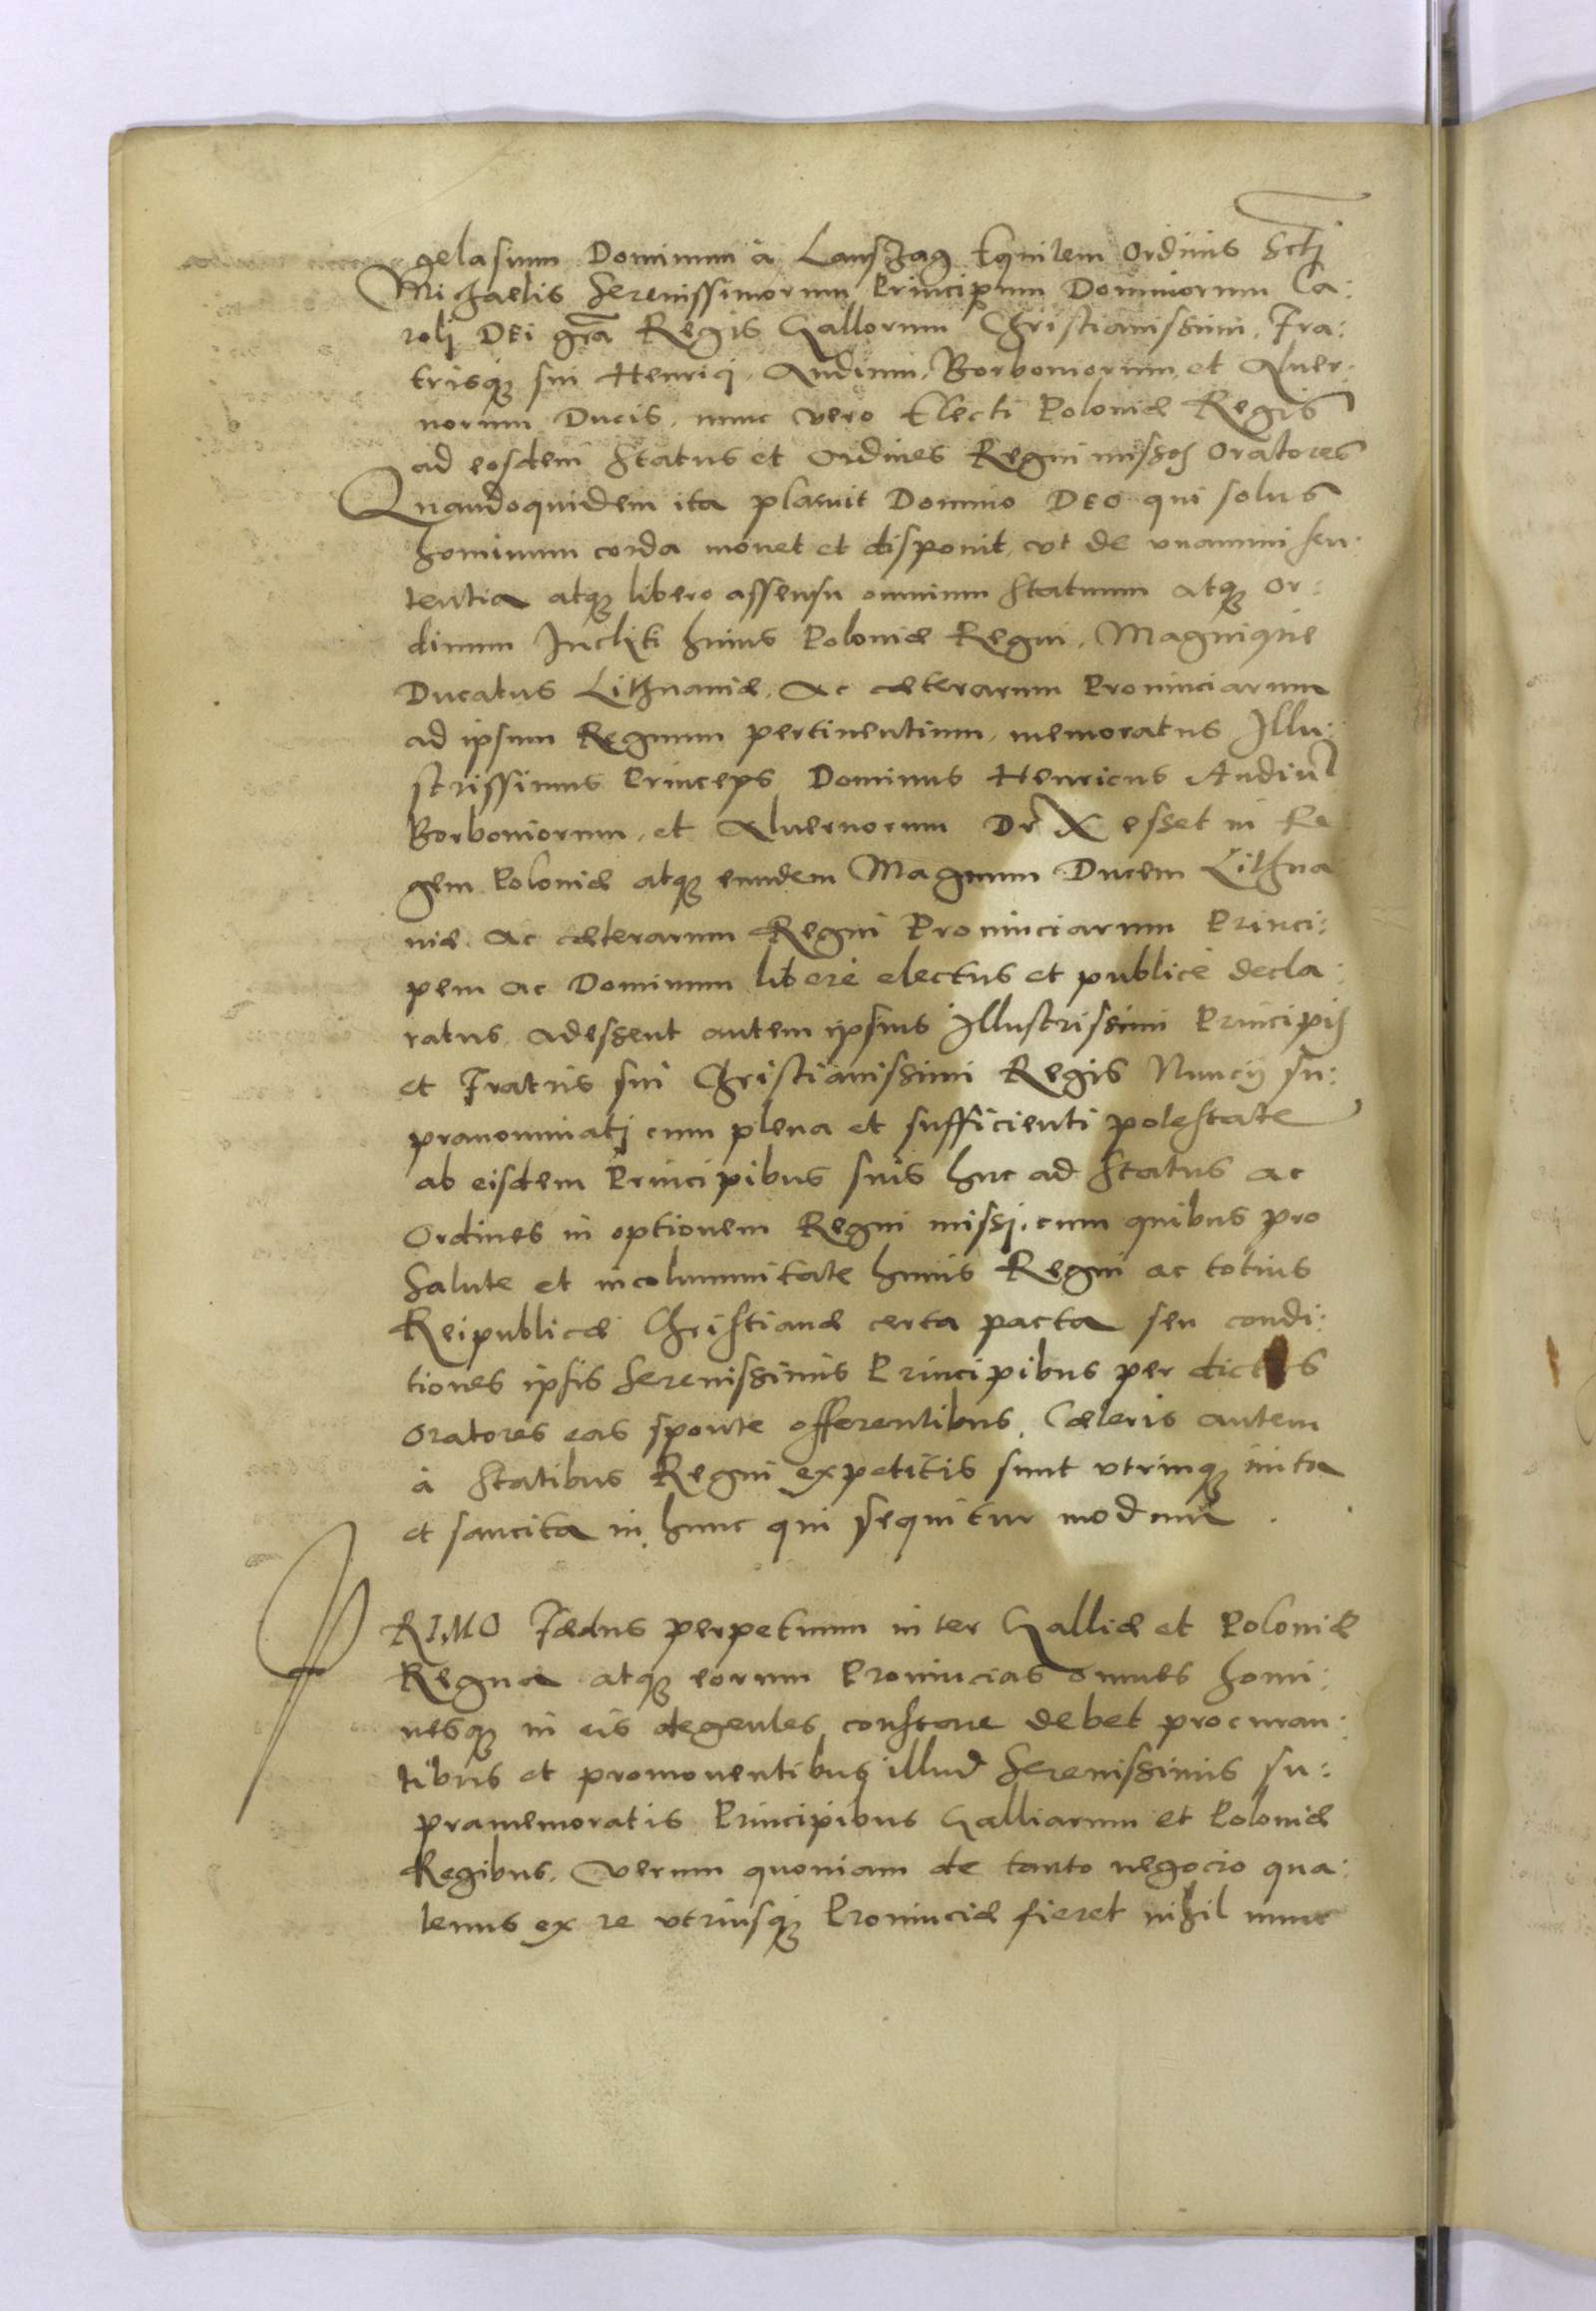 gelasium Dominum à Lanschag Equitem Ordinis Sctj
Michaelis Serenissimorum Principum Dominorum Ca:
rolj DEi gra Regis Gallorum Christianissimi, Fra:
trisq; sui Henrici, Andium, Borboniorum, et Aluer:
norum Ducis, nunc vero Electi Poloniæ Regis
ad eosdem Status et Ordines Regni missos Oratores
Quandoquidem ita placuit Domino DEO qui solus
hominum corda mouet et disponit, vt de vnanimi sen:
tentia atq; libero assensu omnium Statuum atq; or:
dinum Jncliti huius Poloniæ Regni, Magnique
Ducatus Lithuaniæ, Ac cæterarum Prouinciarum
ad ipsum Regnum pertinentium, memoratus Jllu:
strissimus Princeps Dominus Henricus Andium
Borboniorum, et Aluernorum Dr X esset in Re
gem Poloniæ atq; eundem Magnum Ducem Lithua
niæ. Ac cæterarum Regni Prouinciarum Princi:
pem ac Dominum liberè electus et publicè decla:
ratus, Adessent autem ipsius Jllustrissimi Principis
et Fratris sui Christianissimi Regis Nuncij su:
pranominatj cum plena et sufficienti potestate
ab eisdem Principibus suis huc ad Status ac
Ordines in optionem Regni missj, cum quibus pro
Salute et incolumnitate huius Regni ac totius
Reipublicæ Christianæ certa pacta seu condi:
tiones ipsis Serenissimis Principibus per
Oratores eas sponte offerentibus, Cæteris autem
à Statibus Regni expetitis sunt vtrinq; inita
et sancita in hunc qui sequitur modum.
PRIMO Fædus perpetuum inter Galliæ et Poloniæ
Regna atq; eorum Prouincias omnes homi:
nesq; in eis degentes constare debet procuran:
tibus et promouentibus illud Serenissimis su:
pramemoratis Principibus Galliarum et Poloniæ
Regibus. Verum quoniam de tanto negocio qua:
tenus ex re vtriusq; Prouinciæ fieret nihil nunc